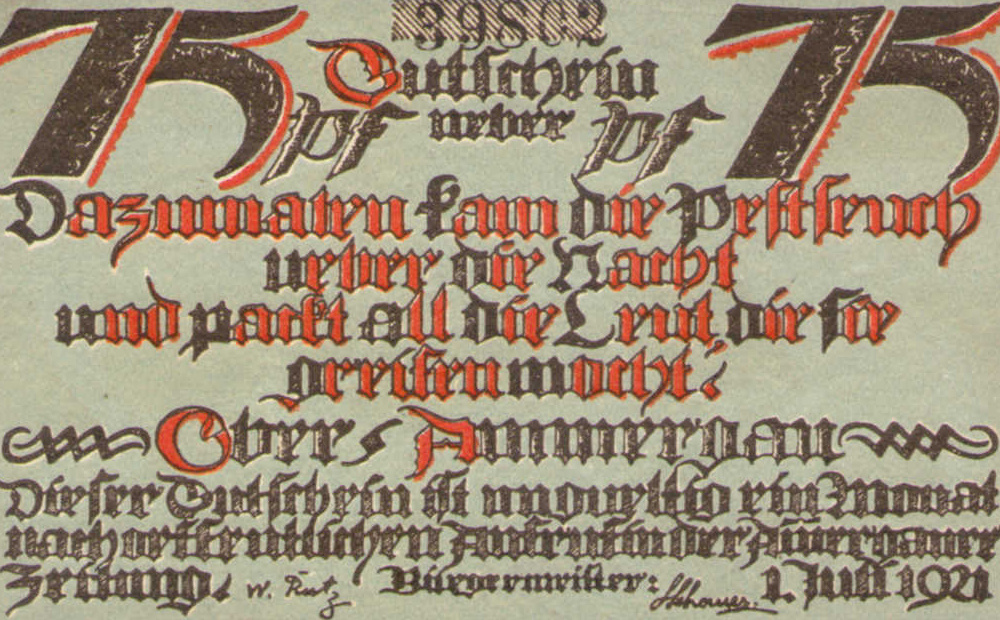 75 39802 75
Gutschein
pf ueber pf
Dazumalen kam die Pestseuch
ueber die Nacht
und packt all die Leut, die sie
greifen mocht.
Ober-Ammergau
Dieser Gutschein ist ungueltig ein Monat
nach oeffentlichen Aufruf in der Ammergauer
Zeitung. W. Rutz Bürgermeister: 1. Juli 1921